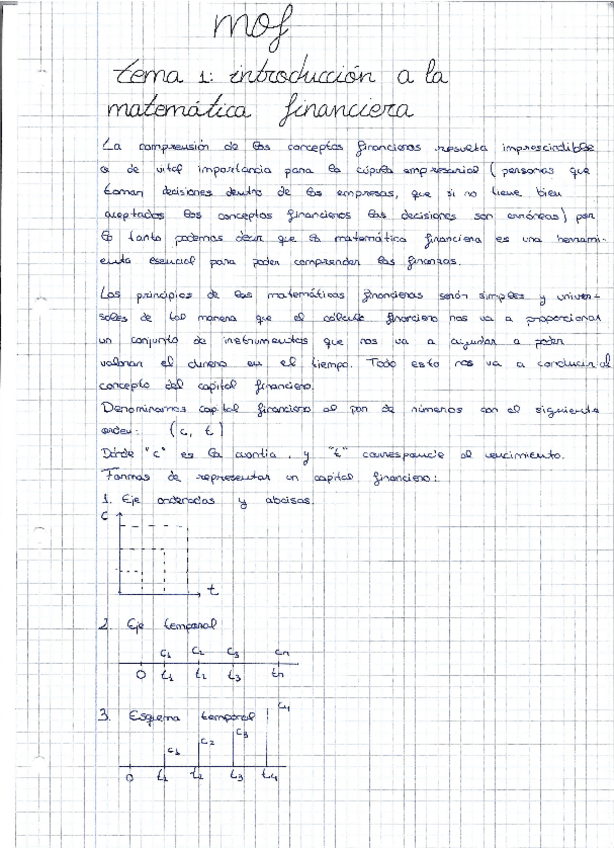 mof
tema 1: introducción a la
matemática financiera
La comprensión de los conceptos financieros resulta imprescindible
o de vital importancia para la cúpula empresarial (personas que
toman decisiones dentro de las empresas, que si no tiene bien
aceptados los conceptos financieros las decisiones son erróneas) por
lo tanto podemos decir que la matemática financiera es una herrami-
enta esencial para poder comprender las finanzas.
Los principios de las matemáticas financieras serán simples y univer-
sales de tal manera que el cálculo financiero nos va a proporcionar
un conjunto de instrumentos que nos va a ayudar a poder
valorar el dinero en el tiempo. Todo esto nos va a conducir al
concepto del capital financiero.
Denominamos capital financiero al par de números con el siguiente
orden: (c, t)
Dónde "c" es la cuantía, y "t" corresponde al vencimiento.
Formas de representar un capital financiero:
1. Eje ordenadas y abcisas.
C
t
2. Eje temporal
C1 C2 C3 Cn
0 t1 t2 t3 tn
3. Esquema temporal
C1 C2 C3 C4
0 t1 t2 t3 t4